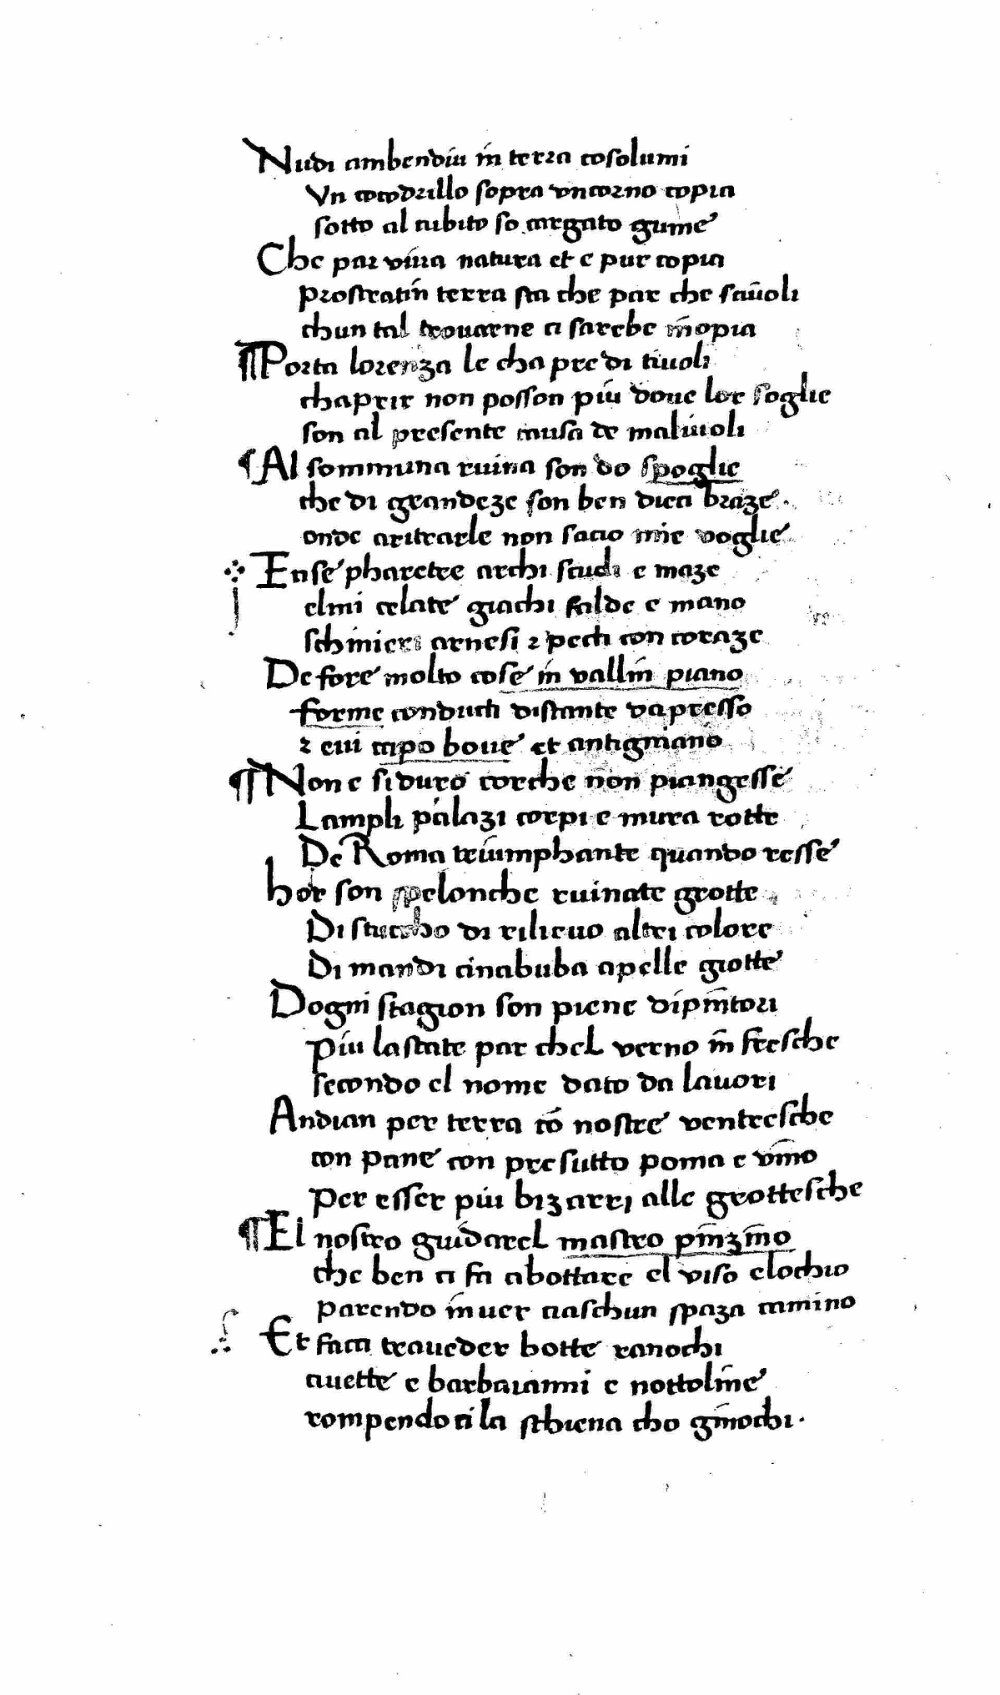 Nudi ambendui in terra cosolumi
Vn cocodrillo sopra vncorno copia
sotto al cubito so cargato gume
Che par viua natura et e pur copia
prostratin terra sta che par che scauoli
chun tal trouarne ci sarebe inopia
¶ Porta lorenza le cha pre di tiuoli
chaprir non posson piu doue lor soglie
son al presente causa de maliuioli
¶ Al sommuna ruina son do spoglie
che di grandeze son ben dieci braze.
onde aritrarle non sacio mie voglie
Ense pharetre archi scudi e maze
elmi celate giachi falde e mano
schinieri arnesi z pecti con coraze
De fore molto cose in vallin piano
forme conducti distante vapresso
z eui capo boue et antigniano
¶ Non e si duro corche non piangesse
Lampli palazi corpi e mura rotte
De Roma triumphante quando resse
hor son spelonche ruinate grotte
Di stuccho di rilieuo altri colore
Di man di cinabuba apelle giotte
Dogni stagion son piene dipintori
piu lastate par chel verno in fresche
secondo el nome dato da lauori
Andian per terra cō nostre ventresche
con pane con presutto poma e vino
per esser piu bizarri alle grottesche
¶ El nostro guidarel mastro pinzino
che ben ci fa abottare el viso elochio
parendo inuer ciaschun spaza camino
Et faci traueder botte ranochi
ciuette e barbaianni e nottoline
rompendoci la schiena cho ginochi.